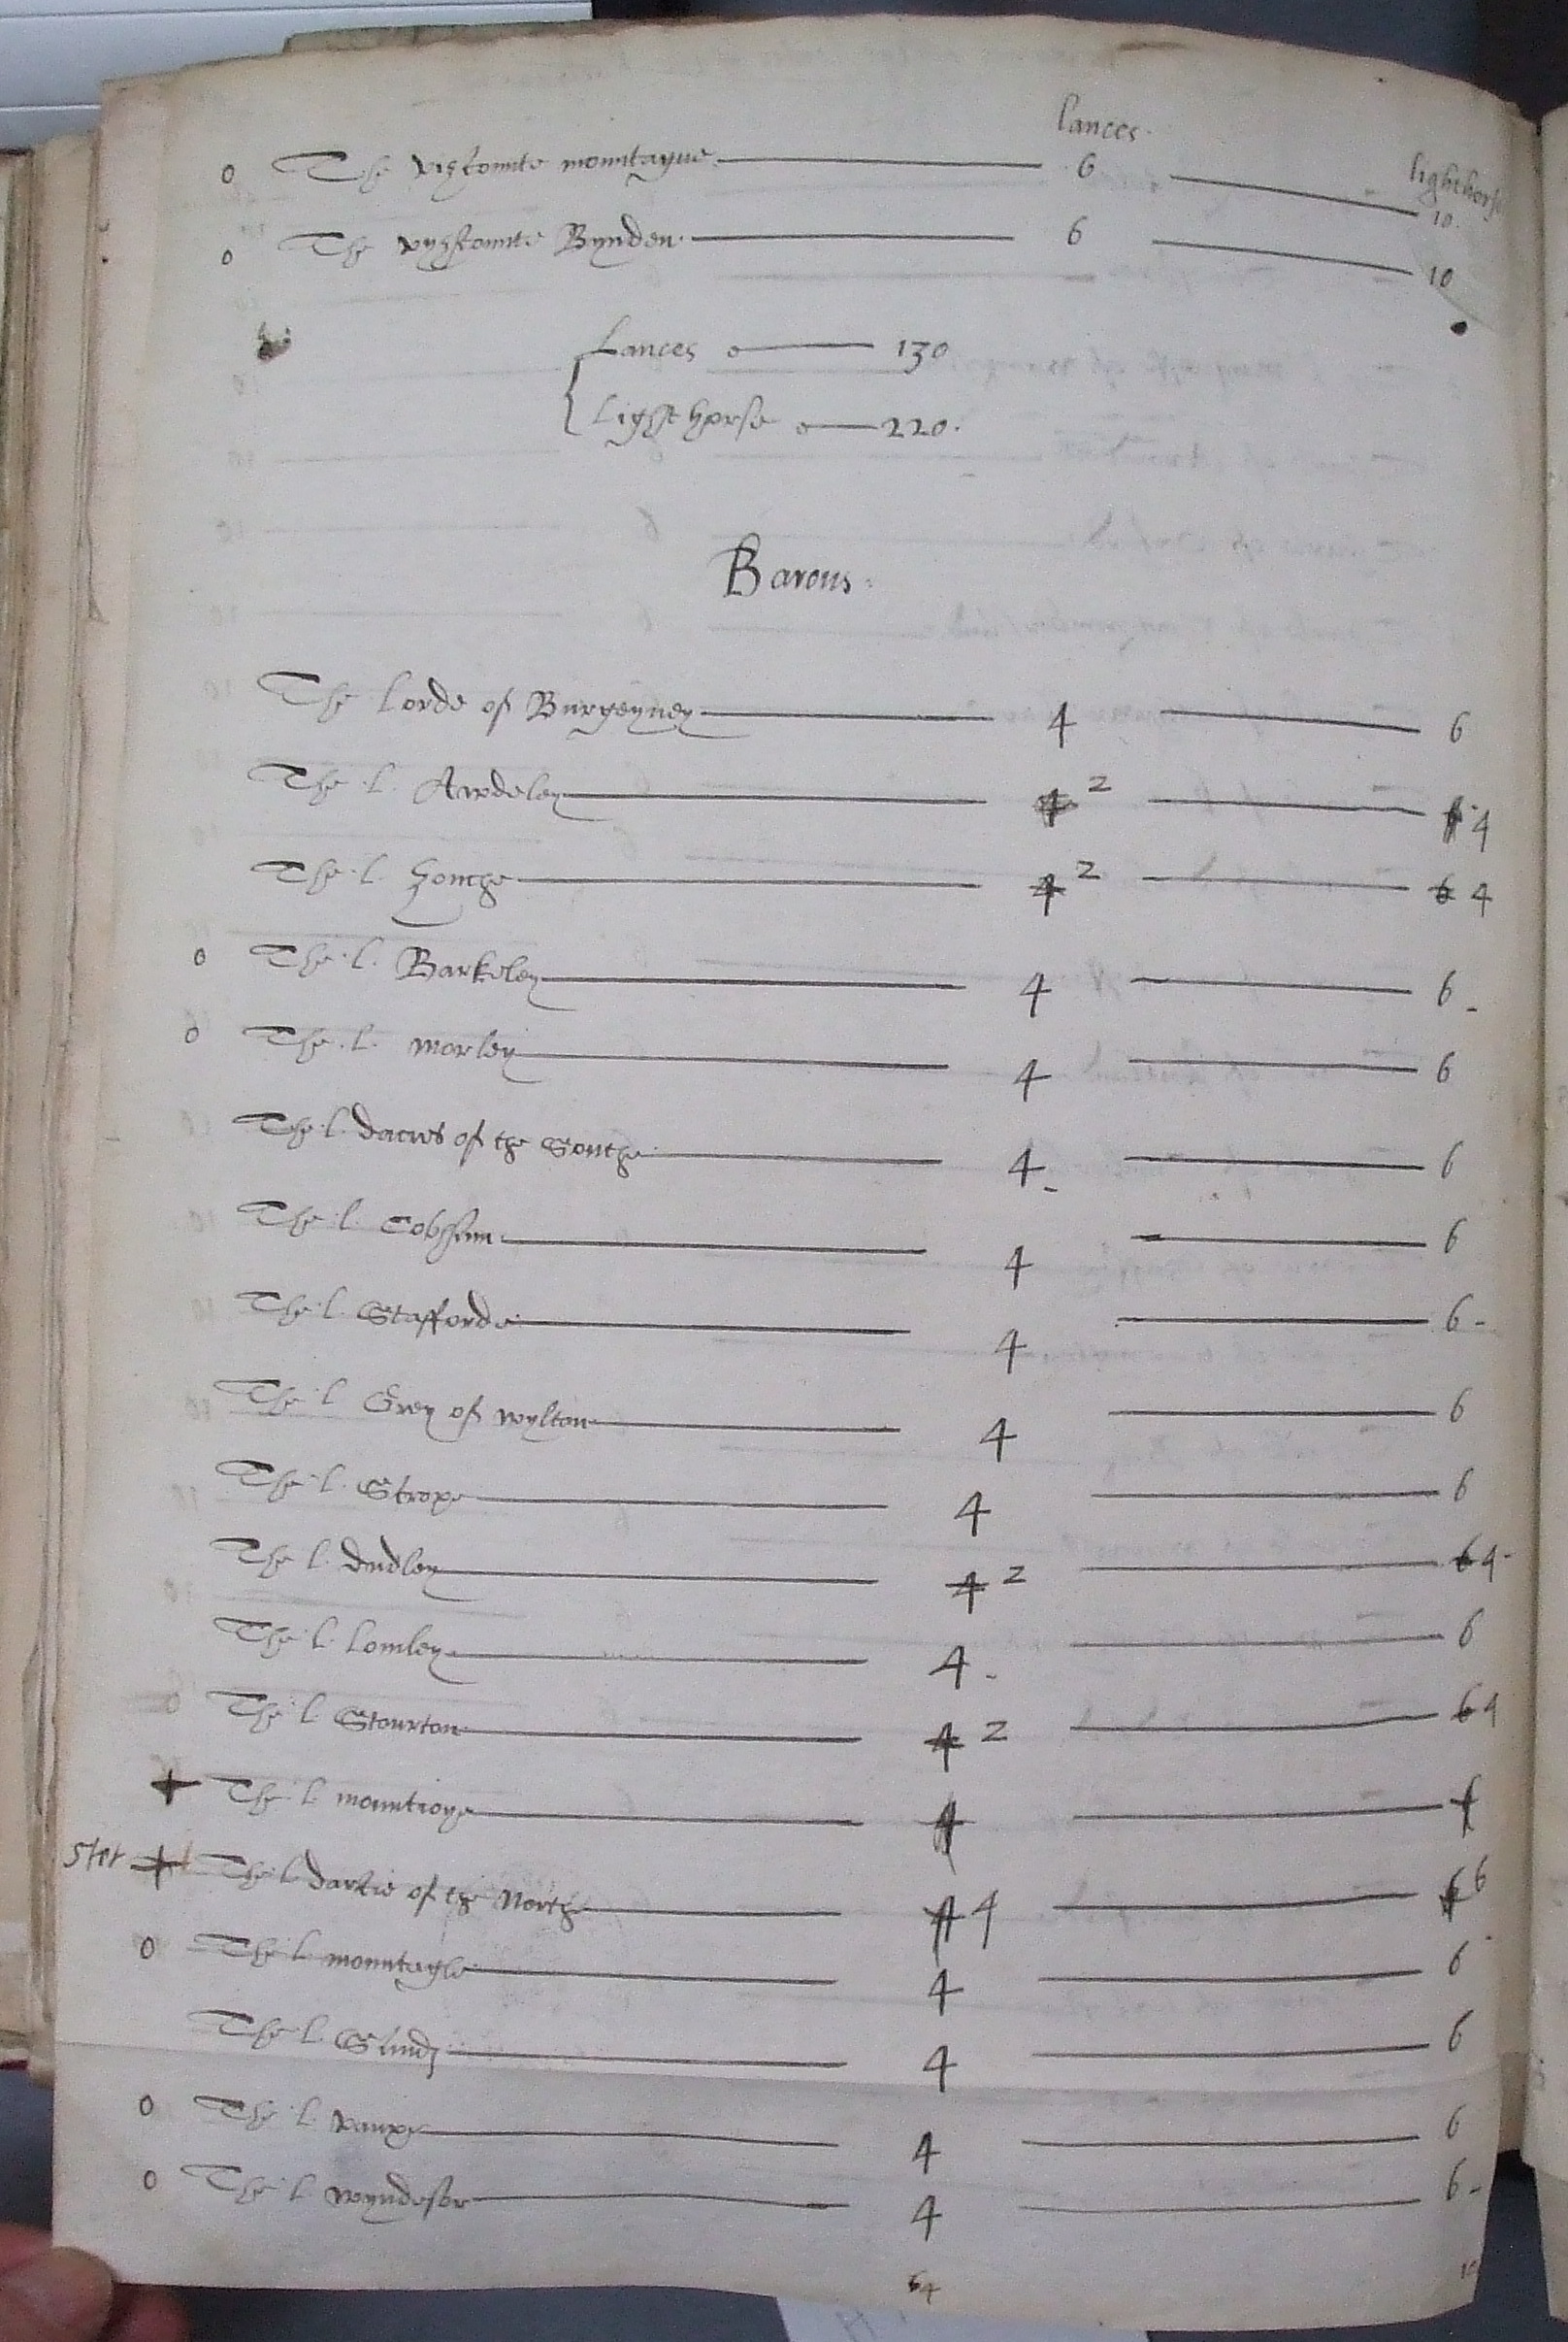 lances.
lighthorse
o The viscomte mountague 6 10.
o The vyscomte Bynden 6 10
Lances o 130
Light horse o 220.
Barons.
The lorde of Burgeyney 4 6
The l. Awdeley 4 2 6 4
The l. Zouche 4 2 6 4
o The l. Barkeley 4 6
o The l. morley 4 6
The l. dacres of the Southe 4 6
The l. Cobham 4 6
The l. Stafforde 4 6
The l. Grey of wylton 4 6
The l. Scrope 4 6
The l. dudley 4 2 6 4
The l. Lomley 4 6
The l. Stourton 4 2 6 4
+ The l. mountioye 4
Stet + The l. darcie of the North 4 4 6 6
o The l. mountegle 4 6
The l. Sandz 4 6
o The l. vauxe 4 6
o The l. wyndesor 4 6
64